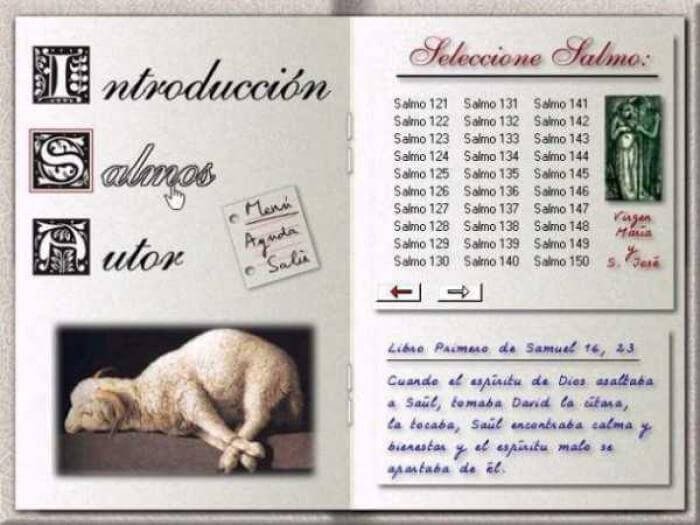 Introducción
Salmos
Autor
Menú
Ayuda
Salir
Seleccione Salmo:
Salmo 121 Salmo 131 Salmo 141
Salmo 122 Salmo 132 Salmo 142
Salmo 123 Salmo 133 Salmo 143
Salmo 124 Salmo 134 Salmo 144
Salmo 125 Salmo 135 Salmo 145
Salmo 126 Salmo 136 Salmo 146
Salmo 127 Salmo 137 Salmo 147
Salmo 128 Salmo 138 Salmo 148
Salmo 129 Salmo 139 Salmo 149
Salmo 130 Salmo 140 Salmo 150
Virgen
María
y
S. José
Libro Primero de Samuel 16, 23
Cuando el espíritu de Dios asaltaba
a Saúl, tomaba David la cítara,
la tocaba, Saúl encontraba calma y
bienestar y el espíritu malo se
apartaba de él.